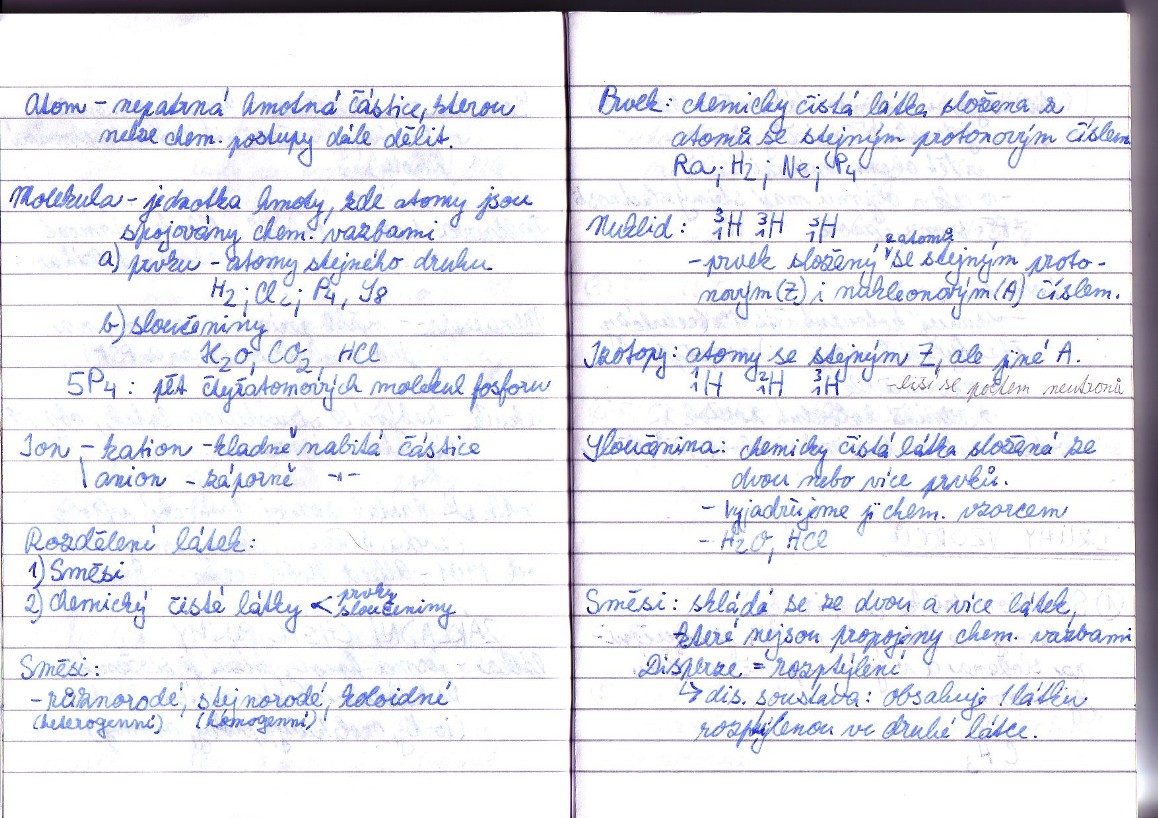 Atom - nepatrná hmotná částice, kterou
nelze chem. postupy dále dělit.
Molekula - jednotka hmoty, kde atomy jsou
spojovány chem. vazbami
a) prvku - atomy stejného druku
H2; Cl2; P4, S8
b) sloučeniny
H2O, CO2 HCl
5P4: pět čtyřatomových molekul fosforu
Ion - kation - kladně nabitá částice
anion - záporně -"-
Rozdělení látek:
1) Směsi
2) chemický čisté látky < prvky
sloučeniny
Směsi:
- různorodé, stejnorodé, koloidné
(heterogenní) (homogenní)
Prvek: chemicky čistá látka složena z
atomů se stejným protonovým číslem
Ra; H2; Ne; P4
Nuklid: ³₁H ³₁H ³₁H
z atomů
- prvek složený se stejným proto-
novým (Z) i nukleonovým (A) číslem.
Izotopy: atomy se stejným Z, ale jiné A.
¹₁H ²₁H ³₁H - liší se počtem neutronů
Sloučenina: chemicky čistá látka složená ze
dvou nebo více prvků.
- Vyjadřujeme ji chem. vzorcem
- H2O, HCl
Směsi: skládá se ze dvou a více látek,
které nejsou propojeny chem. vazbami
Disperze = rozptýlení
↳ dis. soustava: obsahuje 1 látku
rozptýlenou ve druhé látce.